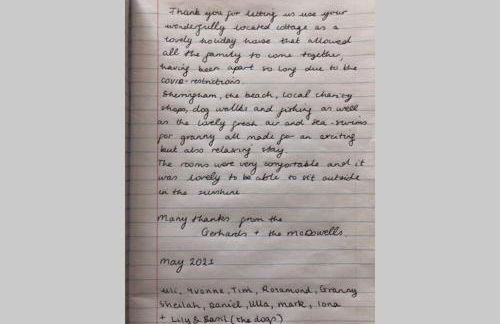 Thank you for letting us use your
wonderfully located cottage as a
lovely holiday house that allowed
all the family to come together,
having been apart so long due to the
covid-restrictions.
Sheringham, the beach, local charity
shops, dog walks and fishing as well
as the lovely fresh air and sea-swims
for granny all made for an exciting
but also relaxing stay.
The rooms were very comfortable and it
was lovely to be able to sit outside
in the sunshine
Many thanks from the
Gerhards + the McDowells.
May 2021
Uli, Yvonne, Tim, Rosamond, Granny
Sheilah, Daniel, Ulla, Mark, Iona
+ Lily & Basil (the dogs)